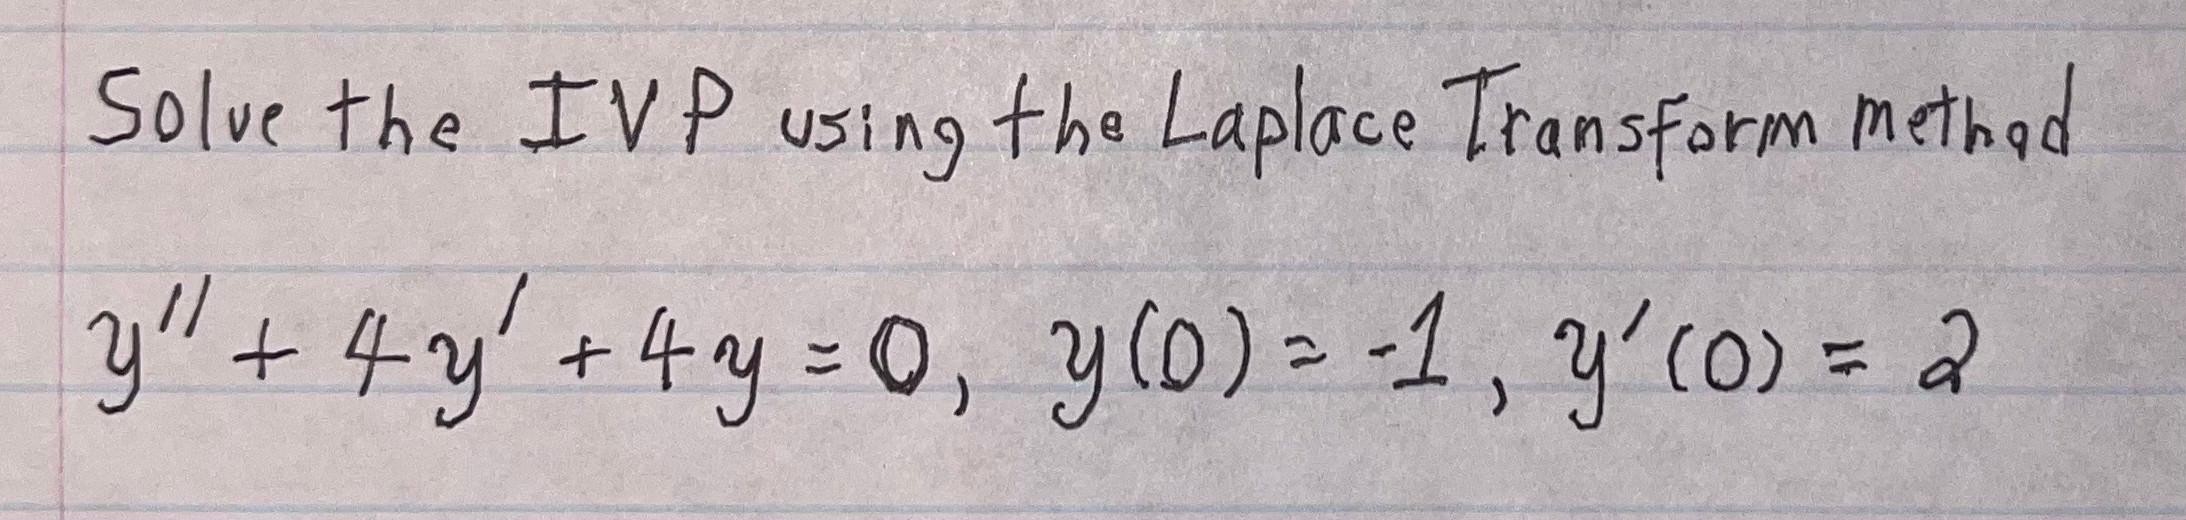 Solve the IVP using the Laplace Transform method
y'' + 4y' + 4y = 0, y(0) = -1, y'(0) = 2